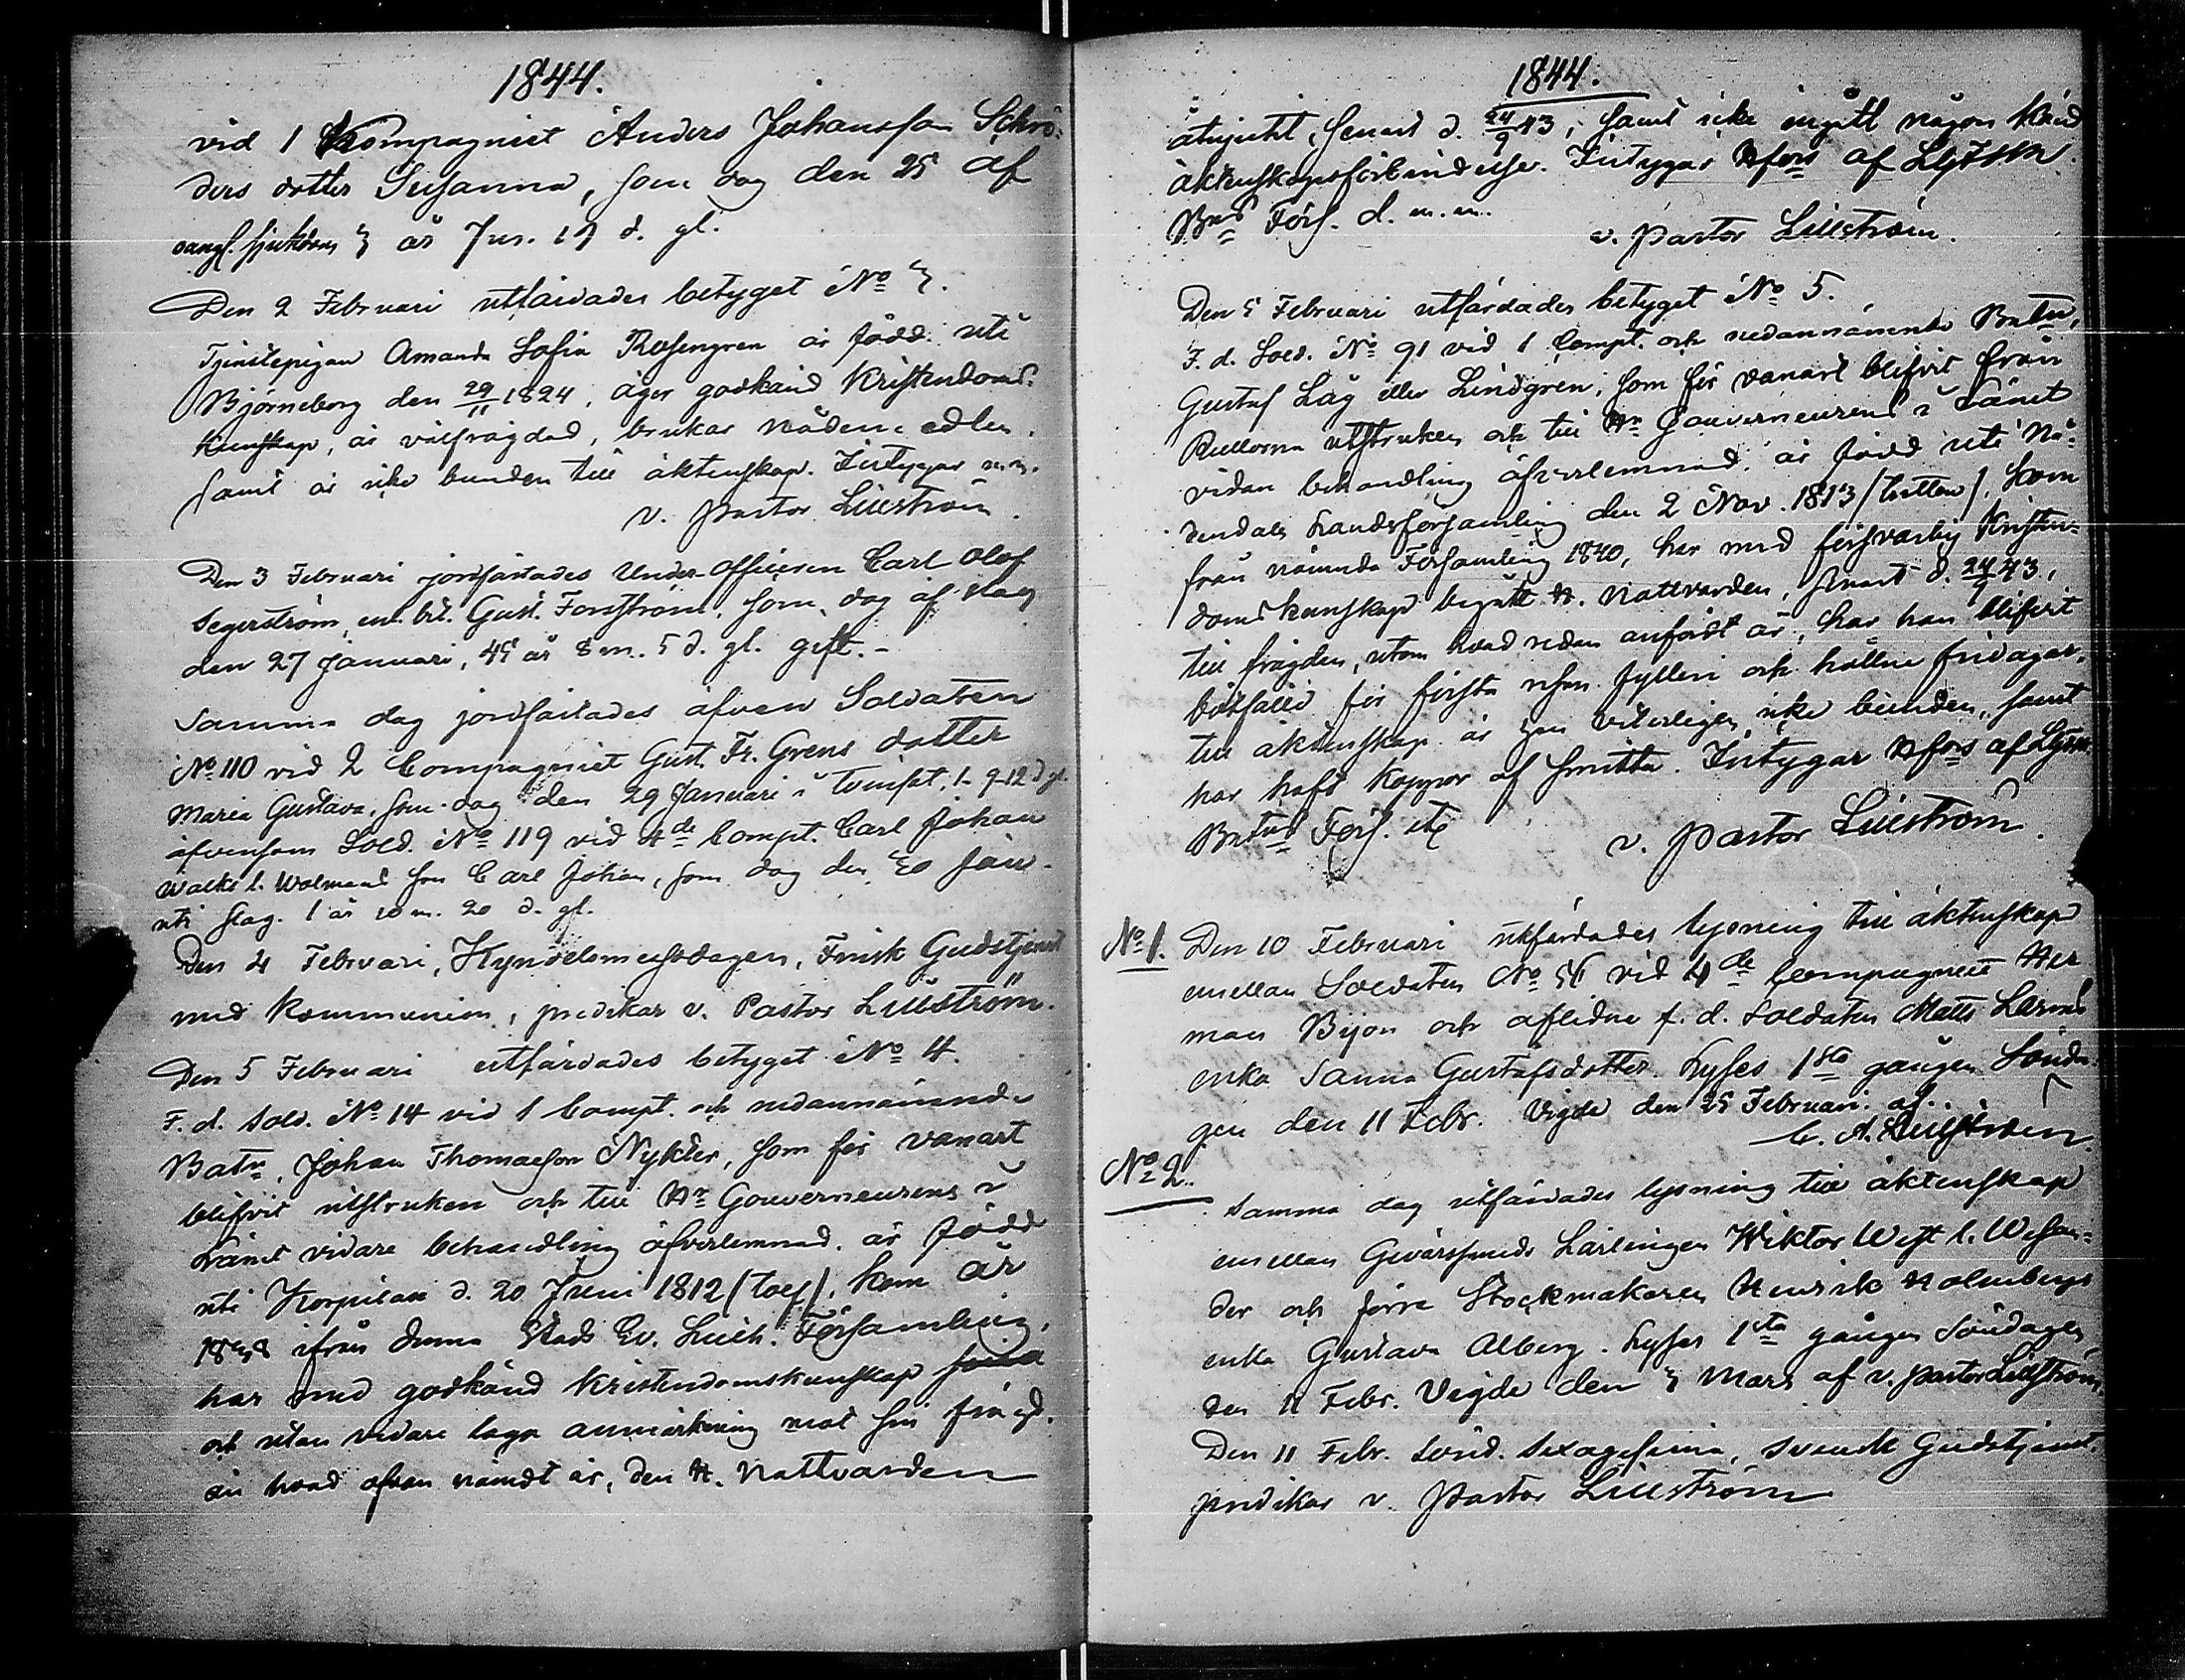 1844.
vid 1 Kompagniet Anders Johansson Schrö-
ders dotter Susanna, som dog den 25 af
sjukdom 3 år 7 m. 19 d. gl.
Den 2 Februari utfärdades betyget No 3.
Tjenstepigan Amanda Sofia Rosengren är född uti
Björneborg den 29/11 1824, äger godkänd Kristendoms-
kunskap, är välfrägdad, brukar nådemedlen
samt är icke bunden till äktenskap. Intygar m.m.
v. Pastor Lillström.
Den 3 Februari jordfästades Under-officeren Carl Olof
Segerström, Gust. Forsström, som dog af slag
den 27 Januari, 45 år 8 m. 5 d. gl. gift.-
Samma dag jordfästades äfven Soldaten
No 110 vid 2 Compagniet Gust. Fr. Grens dotter
Maria Gustava, som dog den 29 Januari i 1. 9. 12 d. gl.
äfvensom Sold. No 119 vid 4de Compt. Carl Johan
Walks l. Walmans son Carl Johan, som dog den 30 Jan.
uti slag. 1 år 10 m. 20 d. gl.
Den 4 Februari, Kyndelsmessodagen, Finsk Gudstjenst
med kommunion, predikar v. Pastor Lillström.
Den 5 Februari utfärdades betyget No 4.
F. d. Sold. No 14 vid 1 Compt. och nedannämnde
Batn, Johan Thomasson Nykter, som för vanart
blifvit utstruken och till Hr Gouverneurens i
Länet vidare behandling öfverlemnad, är född
uti Korpilax d. 20 Juni 1812 (tolf), kom år
ifrån denna Stads Ev. Luth. Församling,
har med godkänd kristendomskunskap
och utan vidare laga anmärkning mot sin frägd.
än hvad ofvan nämdt är, den H. Nattvarden
1844.
åtnjutit, senast d. 24/9 43, samt icke ingått någon känd
äktenskapsförbindelse. Intygar Hfors af LgFskn
Bns Förs. d. m. m.
v. Pastor Lillström.
Den 5 Februari utfärdades betyget No 5.
F. d. Sold. No 91 vid 1 Compt. och nedannämnde Batn,
Gustaf Låg eller Lindgren, som för vanart blifvit från
Rullorna utstruken och till Hr Gouverneurens i Länet
vidare behandling öfverlemnad, är född uti Nå-
dendals Landsförsamling den 2 Nov. 1813 (tretton), kom
från nämnda Församling 1840, har med försvarlig Kristen-
domskunskap begått H. Nattvarden, senast d. 24/9 43,
till frägden, utom hvad redan anfördt är, har han blifvit
bötfälld för första resan fylleri och hållne fridagar.
till äktenskap är han veterligen icke bunden, samt
har haft koppor af smitta. Intygar Hfors af LgFskn
Batns Förs. etc
v. Pastor Lillström.
No 1. Den 10 Februari utfärdades lysning till äktenskap
emellan Soldaten No 56 vid 4de Compagniet Her-
man Bijon och aflidne f. d. Soldaten Matts
enka Sanna Gustafsdotter. Lyses 1sta gången Sönda-
gen den 11 Febr. Vigde den 25 Februari. af
C. A. Lillström
No 2.
Samma dag utfärdades lysning till äktenskap
emellan Gevärsmeds Lärlingen Wiktor West l. Wesan-
der och förre Stockmakaren Henrik Holmbergs
enka Gustava Alberg. Lyses 1sta gången Söndagen
den 11 Febr. Vigde den 3 Mars af v. pastor Lillström.
Den 11 Febr. Sönd. Sexagesima, svensk Gudstjenst.
predikar v. Pastor Lillström